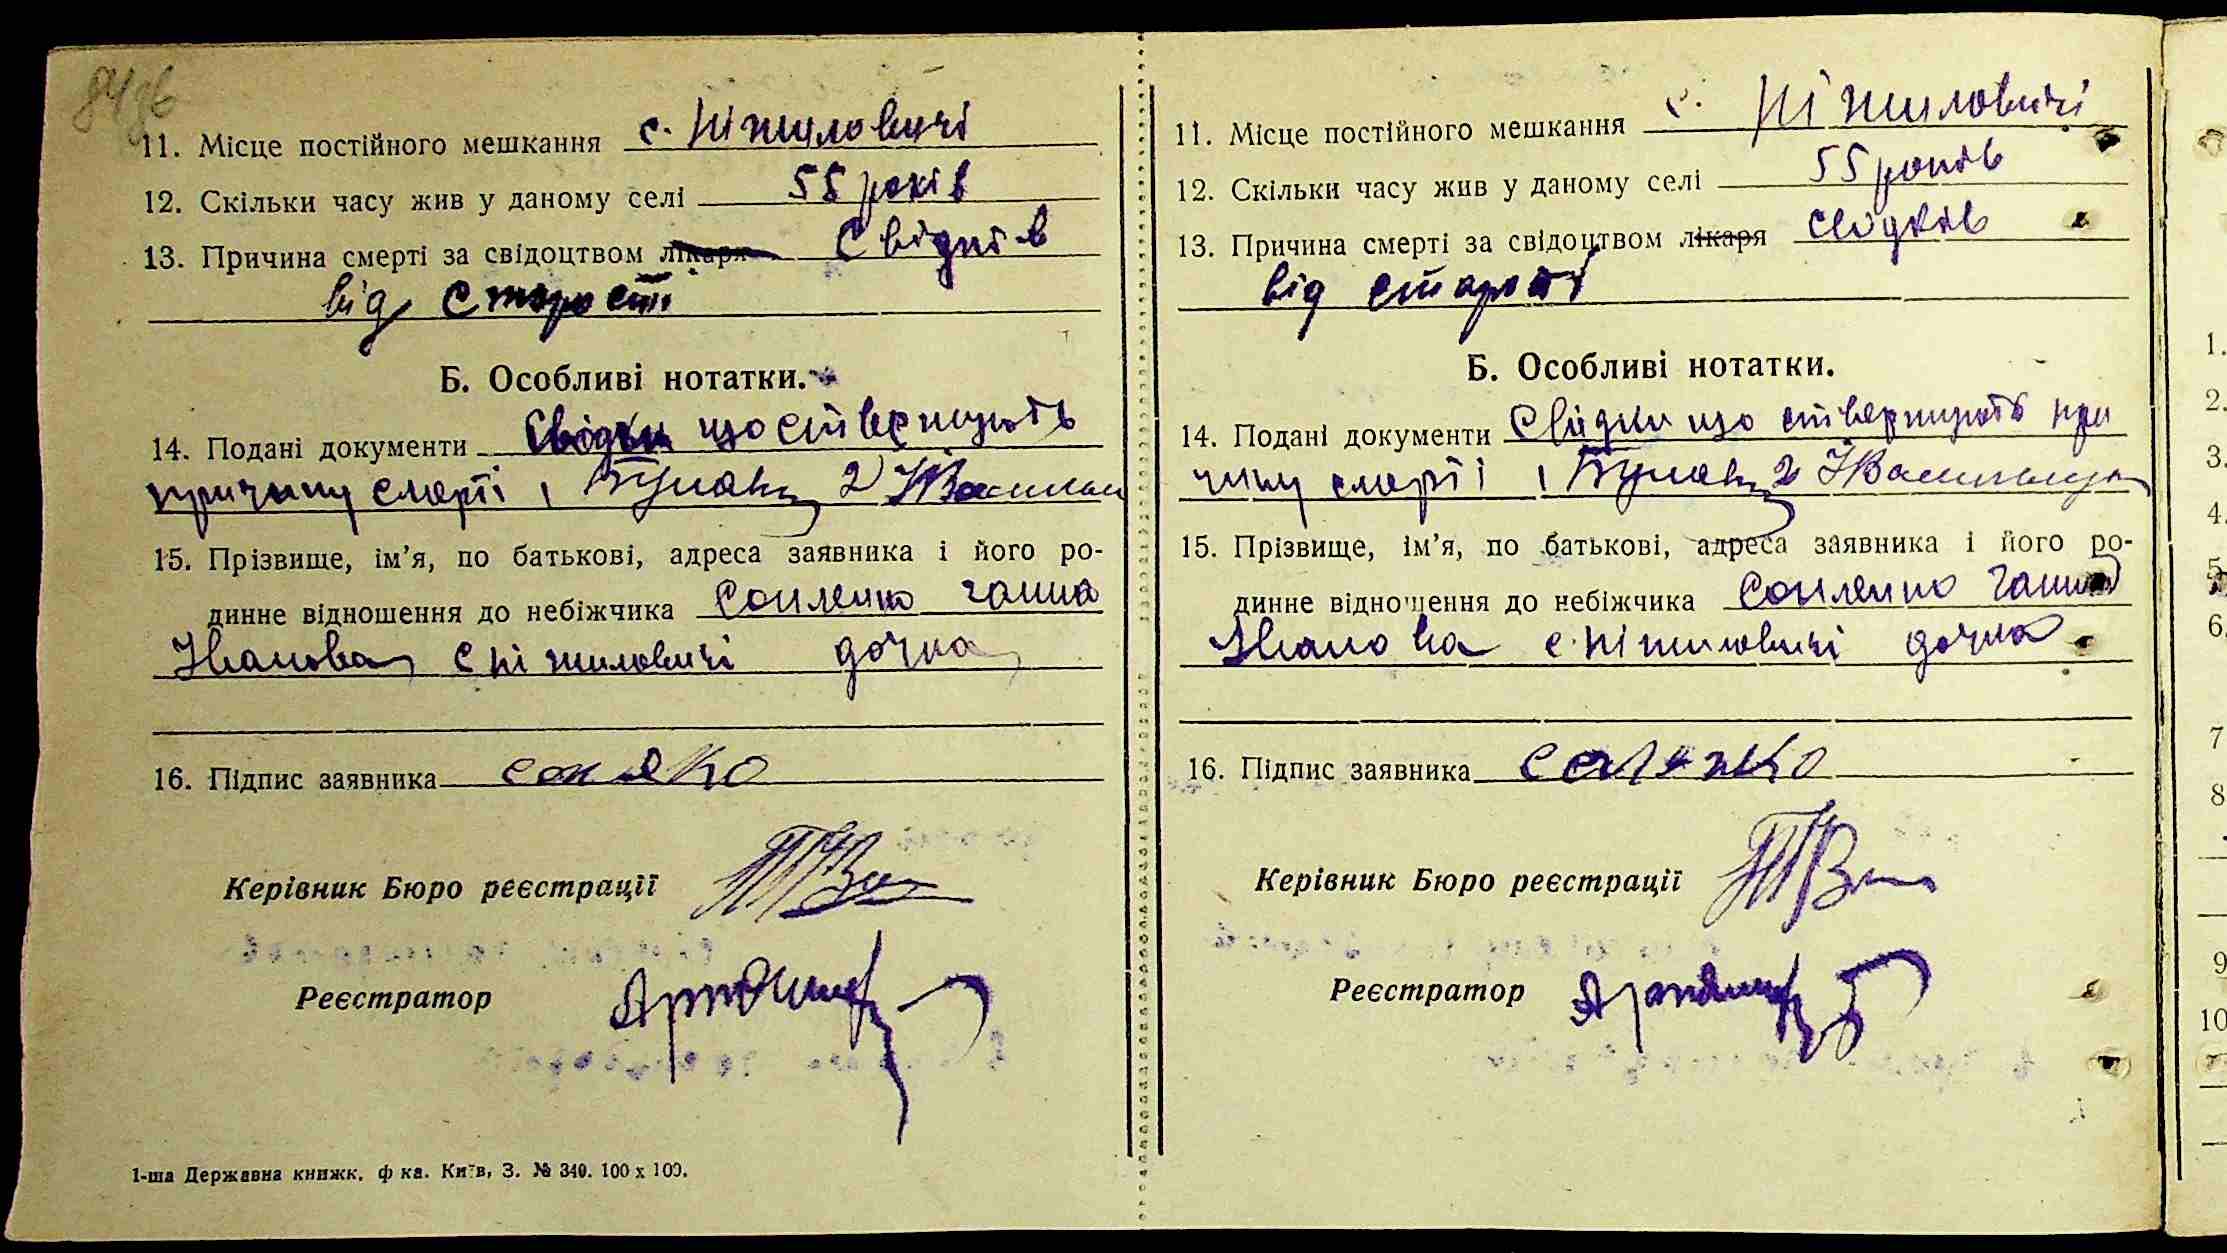 11. Місце постійного мешкання с. Ніжиловичі
12. Скільки часу жив у даному селі 55 років
13. Причина смерті за свідоцтвом лікаря Свідків
від старості
Б. Особливі нотатки.
14. Подані документи Свідки що ствержують
причину смерті 1
15. Прізвище, ім’я, по батькові, адреса заявника і його ро-
динне відношення до небіжчика ганна
Іванова с Ніжиловичі дочка
16. Підпис заявника
Керівник Бюро реєстрації
Реєстратор
1-ша Державна книжк. ф-ка. Київ, З. № 340. 100 х 100.
11. Місце постійного мешкання с. Ніжиловичі
12. Скільки часу жив у даному селі 55 років
13. Причина смерті за свідоцтвом лікаря свідків
від старості
Б. Особливі нотатки.
14. Подані документи Свідки що ствержують при
чину смерті 1
15. Прізвище, ім’я, по батькові, адреса заявника і його ро-
динне відношення до небіжчика ганна
Іванова с. Ніжиловичі дочка
16. Підпис заявника
Керівник Бюро реєстрації
Реєстратор
1.
2.
3.
4.
5.
6.
7
8
9
10